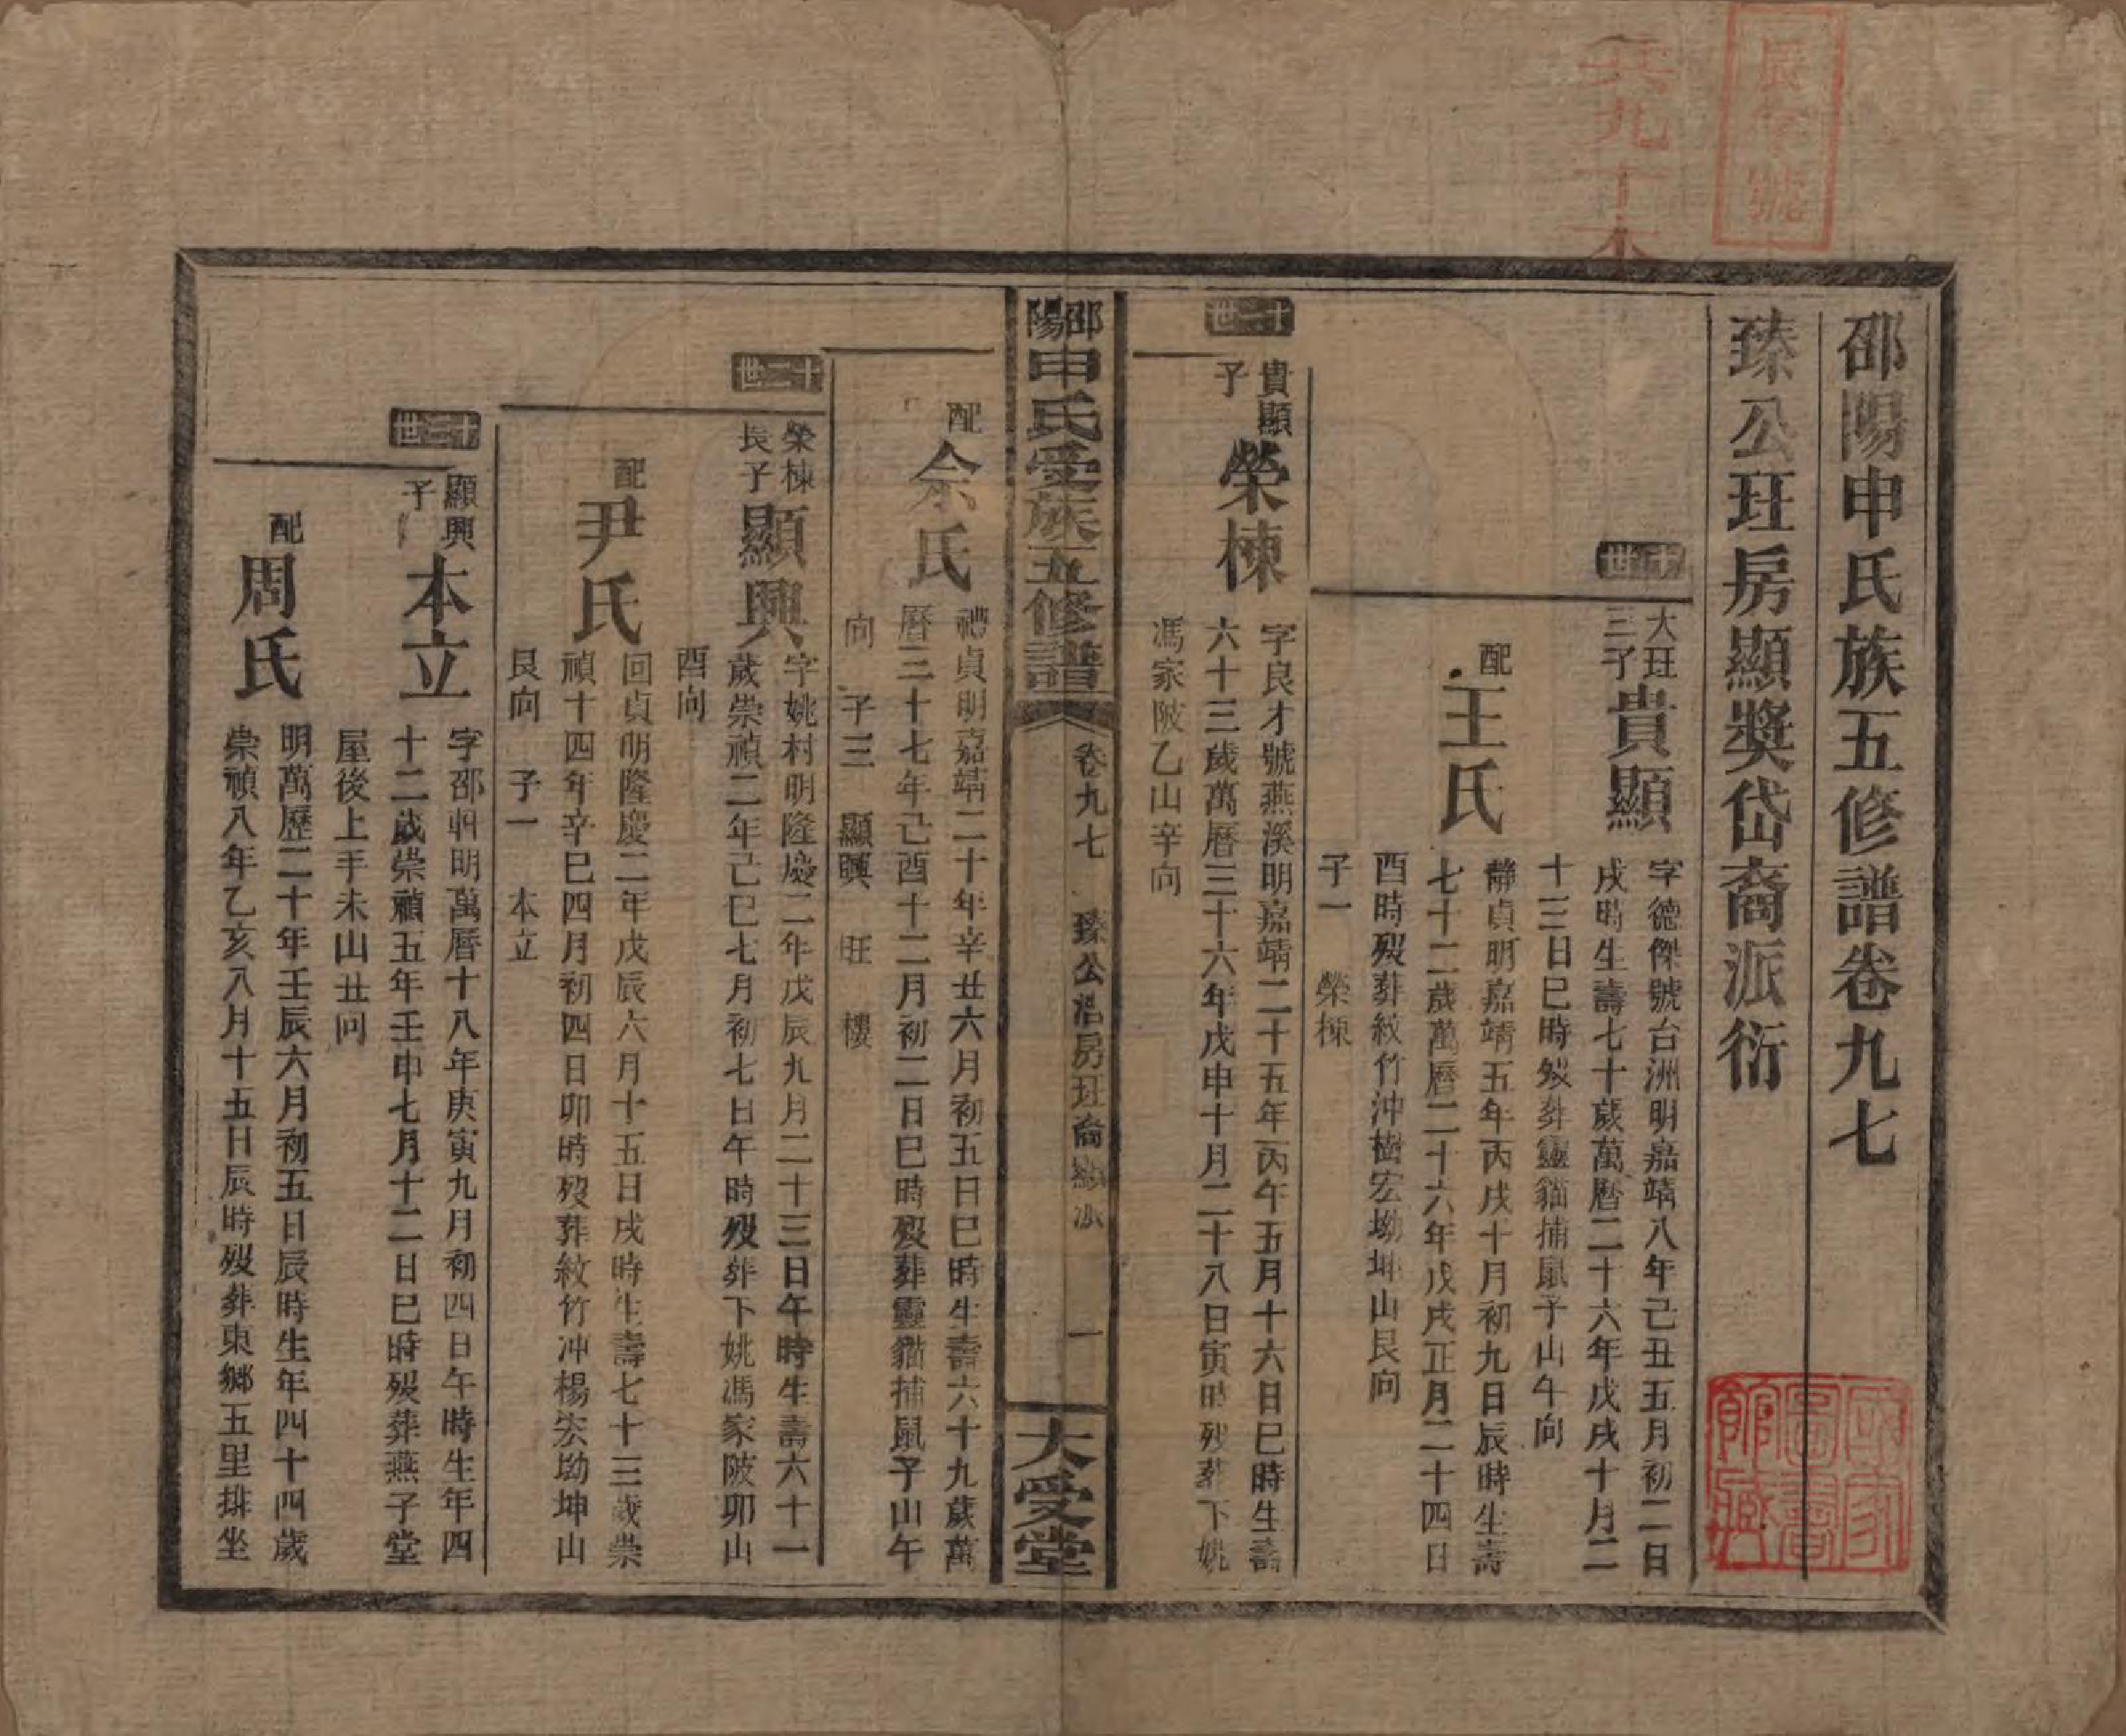 辰字號
共九十本
邵陽申氏族五修譜卷九七
臻公玨房顯獎岱裔派衍
十世
大玨三子
貴顯
字德傑號台洲明嘉靖八年己丑五月初二日
戌時生壽七十歲萬曆二十六年戊戌十月二
十三日巳時歿葬靈貓捕鼠子山午向
配
王氏
靜貞明嘉靖五年丙戌十月初九日辰時生壽
七十二歲萬曆二十六年戊戌正月二十四日
酉時歿葬紋竹沖樹宏坳坤山艮向
子一　榮棟
十一世
貴顯子
榮棟
字良才號燕溪明嘉靖二十五年丙午五月十六日巳時生壽
六十三歲萬曆三十六年戊申十月二十八日寅時歿葬下姚
馮家陂乙山辛向
邵陽申氏受族五修譜
卷九七
臻公浩房玨裔
一
大受堂
配
余氏
禮貞明嘉靖二十年辛丑六月初五日巳時生壽六十九歲萬
曆三十七年己酉十二月初二日巳時歿葬靈貓捕鼠子山午
向　子三　顯興　旺　樓
十二世
榮棟長子
顯興
字姚村明隆慶二年戊辰九月二十三日午時生壽六十一
歲崇禎二年己巳七月初七日午時歿葬下姚馮家陂卯山
酉向
配
尹氏
回貞明隆慶二年戊辰六月十五日戌時生壽七十三歲崇
禎十四年辛巳四月初四日卯時歿葬紋竹沖楊宏坳坤山
艮向　子一　本立
十三世
顯興子
本立
字邵明萬曆十八年庚寅九月初四日午時生年四
十二歲崇禎五年壬申七月十二日巳時歿葬燕子堂
屋後上手未山丑向
配
周氏
明萬歷二十年壬辰六月初五日辰時生年四十四歲
崇禎八年乙亥八月十五日辰時歿葬東鄉五里排坐
國家圖書館藏